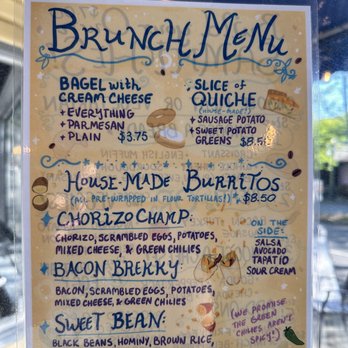 BRUNCH MENU
BAGEL with
CREAM CHEESE
+ EVERYTHING
+ PARMESAN
+ PLAIN $3.75
SLICE of
QUICHE
(HOUSE-MADE!)
+ SAUSAGE POTATO
+ SWEET POTATO
GREENS
HOUSE-MADE BURRITOS
(ALL PRE-WRAPPED IN FLOUR TORTILLAS!) $8.50
CHORIZO CHAMP:
CHORIZO, SCRAMBLED EGGS, POTATOES,
MIXED CHEESE, & GREEN CHILIES
BACON BREKKY:
BACON, SCRAMBLED EGGS, POTATOES,
MIXED CHEESE, & GREEN CHILIES
SWEET BEAN:
BLACK BEANS, HOMINY, BROWN RICE,
ON THE
SIDE:
SALSA
AVOCADO
TAPATIO
SOUR CREAM
(WE PROMISE
THE GREEN
CHILIES AREN'T
SPICY!)